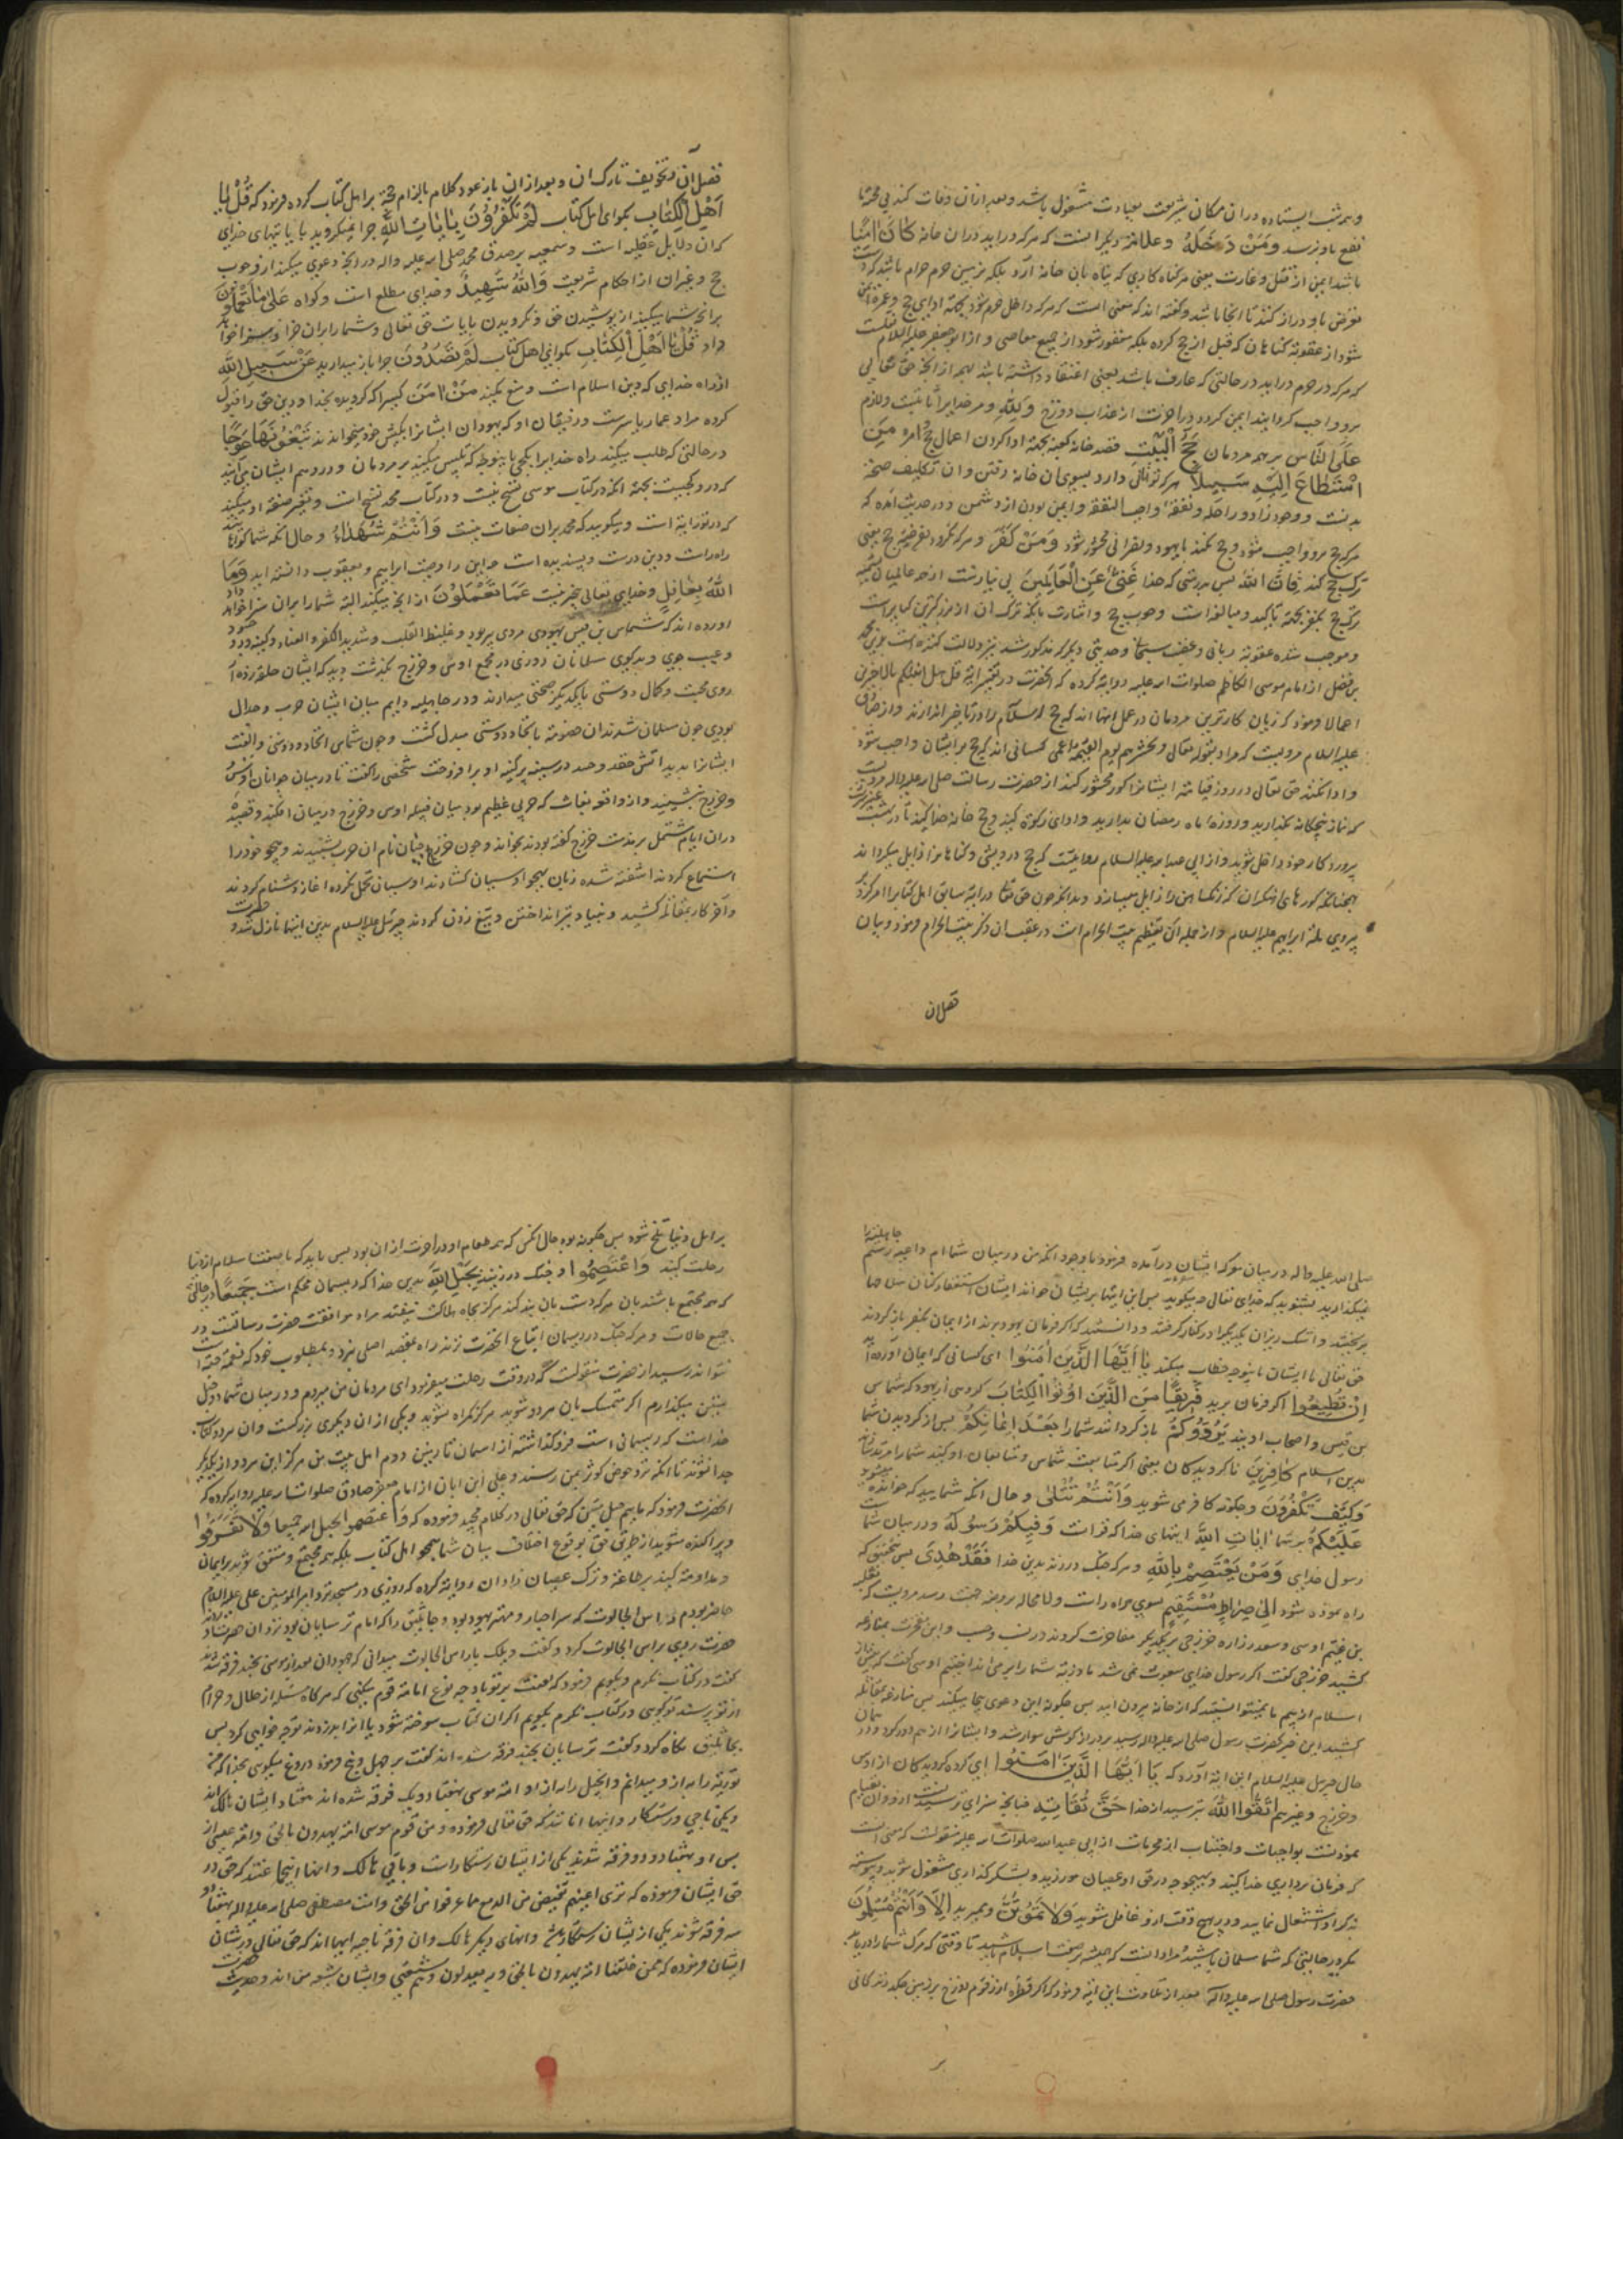 و همه شب ایستاده در ان مکان شریف بعبادت مشغول باشد و بعد از ان وفات کند بی محبت ما
نفع باو نرسد وَمَنْ دَخَلَهُ و علامة دیکر اینست که هر که دراید در ان خانه كَانَ اٰمِنًا
باشد ایمن از قتل و غارت یعنی هر کناه کاری که پناه بان خانه آرد بلکه بزمین حرم حرام باشد که
تعرض باو دراز کنند تا انجا باشد و کفته اند که معنی انست که هر که داخل حرم شود بجهة ادای حج و عمره ایمن
شود از عقوبة کناهان که قبل از حج کرده بلکه مغفور شود از جمیع معاصی و از ابو جعفر علیه السلام
که هر که در حرم دراید در حالتی که عارف باشد یعنی اعتقاد داشته باشد بهمه از انچه حق تعالی
برو واجب کردانید ایمن کردد در اخرت از عذاب دوزخ وَلِلّٰهِ و مر خدایراست ثابت و لازم
عَلَى النَّاسِ بر همه مردمان حِجُّ الْبَيْتِ قصد خانه کعبه بجهة ادا کردن اعمال حج و عمره مَنِ
اسْتَطَاعَ اِلَيْهِ سَبِيلًا هر که توانائی دارد بسوی ان خانه رفتن و ان تکلیف صحة
بدنست و وجود زاد و راحله و نفقهٔ واجب النفقه و ایمن بودن از دشمن و در حدیث امده که
هر که حج برو واجب شود و حج نکند یا یهود و نصرانی محشور شود وَمَنْ كَفَرَ و هر که نکرود بفرضیة حج یعنی
ترک حج کند فَاِنَّ اللّٰهَ پس بدرستی که خدا غَنِيٌّ عَنِ الْعَالَمِينَ بی نیازست از همه عالمیان تسمیه
ترک حج بکفر بجهة تاکید و مبالغه است وجوب حج و اشارت بانکه ترک ان از بزرکترین کبایر است
و موجب شده عقوبة ربانی و غضب سبحانی و حدیثی دیکر که مذکور شد نیز دلالت کننده است برین محمد
بن فضل از امام موسی الکاظم صلوات الله علیه روایة کرده که انحضرت در تفسیر ایة قل هل انبئکم بالاخسرین
اعمالا فرمود که زیان کارترین مردمان در عمل انها اند که حج اسلام را در تاخیر اندازند و از صادق
علیه السلام مرویست که مراد بقوله تعالی و نحشرهم یوم القیمة اعمی کسانی اند که حج بر ایشان واجب شود
و ادا نکنند حق تعالی در روز قیامة ایشانرا کور محشور کند از حضرت رسالت صلی الله علیه واله مرویست
که نماز پنجکانه بکذارید و روزه ماه رمضان بدارید و ادای زکوة کنید و حج خانه خدا کنید تا در بهشت
پروردکار خود داخل شوید و از ابی عبدالله علیه السلام روایتست که حج درویشی و کناهانرا زایل میکرداند
همچنانکه کورهای اهنکران که زنک اهن را زایل میسازد و بدانکه چون حق تعالی در ایة سابق اهل کتابرا امر کرد
پیروی ملة ابراهیم علیه السلام و از جمله ان تعظیم بیت الحرام است در عقب ان ذکر بیت الحرام فرمود و بیان
فضل ان
فضل ان و تخویف تارک ان و بعد از ان باز عود کلام بالزام حجة بر اهل کتاب کرده فرمود که قُلْ يَا
اَهْلَ الْكِتَابِ بکو ای اهل کتاب لِمَ تَكْفُرُونَ بِاٰيَاتِ اللّٰهِ چرا نمیکروید بایاتهای خدای
که ان دلایل عقلیه است و سمعیه بر صدق محمد صلی الله علیه واله در انچه دعوی میکند از وجوب
حج و غیر ان از احکام شریعت وَاللّٰهُ شَهِيدٌ و خدای مطلع است و کواه عَلٰى مَا تَعْمَلُونَ
بر انچه شما میکنید از پوشیدن حق و نکرویدن بایات حق تعالی و شما را بران جزا و سزا خواهد
داد قُلْ يَا اَهْلَ الْكِتَابِ بکو ای اهل کتاب لِمَ تَصُدُّونَ چرا باز میدارید عَنْ سَبِيلِ اللّٰهِ
از راه خدای که دین اسلام است و منع میکنید مَنْ اٰمَنَ کسیرا که کرویده بخدا و دین حق را قبول
کرده مراد عمار یاسرست و رفیقان او که یهودان ایشانرا بکیش خود میخواندند تَبْغُونَهَا عِوَجًا
در حالتی که طلب میکنید راه خدایرا بکجی باینوجه که تلبیس میکنید بر مردمان و در وهم ایشان می آرید
که در و کجیست بجهة انکه در کتاب موسی نسخ نیست و در کتاب محمد نسخ است و تغییر صفة او میکنید
که در توریة است و میکویید که محمد بران صفات نیست وَاَنْتُمْ شُهَدَاءُ و حال انکه شما کواهانید
راه راست و دین درست و پسندیده است و این را وصیت ابراهیم و یعقوب دانسته اید وَمَا
اللّٰهُ بِغَافِلٍ و خدای تعالی بیخبر نیست عَمَّا تَعْمَلُونَ از انچه میکنید البته شما را بران سزا خواهد داد
اورده اند که شماس بن قیس یهودی مردی پیر بود و غلیظ القلب و شدید الکفر و العناد و کینه ور و حسود
و عیب جوی و بدکوی مسلمانان روزی در مجمع اوس و خزرج بگذشت دید که ایشان حلقه زده از
روی محبت و کمال دوستی با یکدیکر صحبتی میدارند و در جاهلیه دایم میان ایشان حرب و جدال
بودی چون مسلمان شدند ان خصومة باتحاد و دوستی مبدل کشت و چون شماس اتحاد و دوستی و الفت
ایشانرا بدید اتش حقد و حسد در سینه پر کینه او برافروخت شخصی را کفت تا در میان جوانان اوس
و خزرج بنشیند و از واقعه بغاث که حربی عظیم بود میان قبیله اوس و خزرج در میان افکند و قصیدهٔ
در ان ایام مشتمل بر مذمت خزرج کفته بودند بخواند و چون خزرجیان نام ان حرب بشنیدند و هجو خود را
استماع کردند اشفته شده زبان بهجو اوسیان کشادند اوسیان تحمل نکرده اغاز دشنام کردند
و اخر کار بمقاتله کشید و بنیاد تیر انداختن و تیغ زدن کردند جبرئیل علیه السلام بدین ایتها نازل شد و حضرت
صلی الله علیه واله در میان هر دو کروه ایشان درآمده فرمود با وجود انکه من در میان شما ام داعیه رسم جاهلیت را
میکذارید بشنوید که خدای تعالی چه میکوید پس این ایتها بر ایشان خواند ایشان استغفار کنان سلاحها
بریختند و اشک ریزان یکدیکر را در کنار کرفتند و دانستند که اکر فرمان یهود برند از ایمان بکفر باز کردند
حق تعالی با ایشان باینوجه خطاب میکند يَا اَيُّهَا الَّذِينَ اٰمَنُوا ای کسانی که ایمان آورده اید
اِنْ تُطِيعُوا اکر فرمان برید فَرِيقًا مِنَ الَّذِينَ اُوتُوا الْكِتَابَ کروهی از یهود که شماس
بن قیس و اصحاب اویند يَرُدُّوكُمْ باز کردانند شما را بَعْدَ اِيمَانِكُمْ پس از کرویدن شما
بدین اسلام كَافِرِينَ ناکرویدکان یعنی اکر متابعت شماس و متابعان او کنید شما را مرتد سازند
وَكَيْفَ تَكْفُرُونَ و چکونه کافر می شوید وَاَنْتُمْ تُتْلٰى و حال انکه شمایید که خوانده میشود
عَلَيْكُمْ بر شما اٰيَاتُ اللّٰهِ ایتهای خدا که قرانست وَفِيكُمْ رَسُولُهُ و در میان شماست
رسول خدای وَمَنْ يَعْتَصِمْ بِاللّٰهِ و هر که چنک در زند بدین خدا فَقَدْ هُدِيَ پس بتحقیق که
راه نموده شود اِلٰى صِرَاطٍ مُسْتَقِيمٍ بسوی راه راست و لامحاله بروضه جنت رسد مرویست که ثعلبه
بن غنم اوسی و سعد بن زراره خزرجی بر یکدیکر مفاخرت کردند در نسب و حسب و این مفاخرت بمنازعه
کشید خزرجی کفت اکر رسول خدای مبعوث نمی شد ما دریة شما را بر می انداختیم اوسی کفت که پیش از
اسلام از بیم ما نمیتوانستید که از خانه بیرون ایید پس چکونه این دعوی بیجا میکنید پس منازعه بمقاتله
کشید این خبر بحضرت رسول صلی الله علیه واله رسید بر دراز کوش سوار شد و ایشانرا از هم دور کرد و در همان
حال جبرئیل علیه السلام این ایة آورد که يَا اَيُّهَا الَّذِينَ اٰمَنُوا ای کروه کرویدکان از اوس
و خزرج و غیر هم اتَّقُوا اللّٰهَ بترسید از خدا حَقَّ تُقَاتِهِ چنانچه سزای ترسیدنست ازو و ان قیام
نمودنست بواجبات و اجتناب از محرمات از ابی عبدالله صلوات الله علیه منقولست که معنی انست
که فرمان برداری خدا کنید و بهیچوجه در حق او عصیان مورزید و بشکر کذاری مشغول شوید و پیوسته
بذکر او اشتغال نمایید و در هیچ وقت ازو غافل مشوید وَلَا تَمُوتُنَّ و ممیرید اِلَّا وَاَنْتُمْ مُسْلِمُونَ
مکر در حالتی که شما مسلمان باشید مراد انست که همیشه بر صفت اسلام باشید تا وقتی که مرک شما را دریابد
حضرت رسول صلی الله علیه واله بعد از تلاوت این ایة فرمود که اکر قطرهٔ از زقوم دوزخ بر زمین چکد زندکانی
بر
بر اهل دنیا تلخ شود پس چکونه بود حال انکس که همه طعام او در اخرت از ان بود پس باید که با صفت اسلام از دنیا
رحلت کنید وَاعْتَصِمُوا و چنک در زنید بِحَبْلِ اللّٰهِ بدین خدا که ریسمان محکم است جَمِيعًا در حالتی
که همه مجتمع باشند بان هر که دست بان بند کند هرکز بچاه هلاکت نیفتد مراد موافقت حضرت رسالتست در
جمیع حالات و هر که چنک در ریسمان اتباع انحضرت نزند راه بمقصد اصلی نبرد و بمطلوب خود که
نتواند رسید از حضرت منقولست که در وقت رحلت میفرمود ای مردمان من میروم و در میان شما دو حبل
متین میکذارم اکر متمسک بان هر دو شوید هرکز کمراه نشوید و یکی از ان دیکری بزرکست و ان هر دو کتاب
خداست که ریسمانی است فروکذاشته از اسمان تا زمین دوم اهل بیت من هرکز این هر دو از یکدیکر
جدا نشوند تا انکه نزد حوض کوثر بمن رسند و علی ابن ابان از امام جعفر صادق صلوات الله علیه روایة کرده که
انحضرت فرمود که ماییم حبل متین که حق تعالی در کلام مجید فرموده که واعتصموا بحبل الله جمیعا وَلَا تَفَرَّقُوا
و پراکنده مشوید از طریق حق بوقوع اختلاف میان شما همچو اهل کتاب بلکه همه مجتمع و متفق شوید بر ایمان
و مداومة کنید بر طاعة و ترک عصیان زادان روایة کرده که روزی در مسجد نزد امیر المومنین علی علیه السلام
حاضر بودم راس الجالوت که سر احبار و مهتر یهود بود و جاثلیق را که امام ترسایان بود نزد ان حضرت
حضرت روی براس الجالوت کرد و کفت ویلک یا راس الجالوت میدانی که جهودان بعد از موسی بچند فرقه شدند
کفت در کتاب نکرم و بکویم فرمود که لعنت بر تو باد چه نوع امامة قوم میکنی که هرکاه مسئله از حلال و حرام
از تو پرسند تو کویی در کتاب نکرم بکویم اکر ان کتاب سوخته شود یا انرا بدزدند تو چه خواهی کرد پس
بجاثلیق نکاه کرد و کفت ترسایان بچند فرقه شده اند کفت بر چهل و پنج فرمود دروغ میکویی بخدا که من
توریة را به از و میدانم و انجیل را به از او امة موسی بهفتاد و یک فرقه شده اند هفتاد ایشان هالک اند
و یکی ناجی و رستکار و اینها انانند که حق تعالی فرموده و من قوم موسی امة یهدون بالحق و امة عیسی از
پس او بهفتاد و دو فرقه شدند یکی از ایشان رستکارست و باقی هالک و اینها اینجماعتند که حق در
حق ایشان فرموده که تری اعینهم تفیض من الدمع مما عرفوا من الحق و امت مصطفی صلی الله علیه واله بهفتاد و
سه فرقه شوند یکی از ایشان رستکار باشد و انهای دیکر هالک و ان فرقه ناجیه اینها اند که حق تعالی در شان
ایشان فرموده که ممن خلقنا امة یهدون بالحق و به یعدلون و هم شیعتی و ایشان شیعه من اند و حضرت